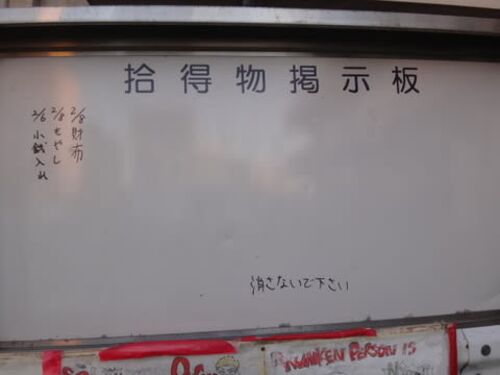 拾得物掲示板
2/8 財布
2/8 もやし
2/6 小銭入れ
消さないで下さい
PERSON IS